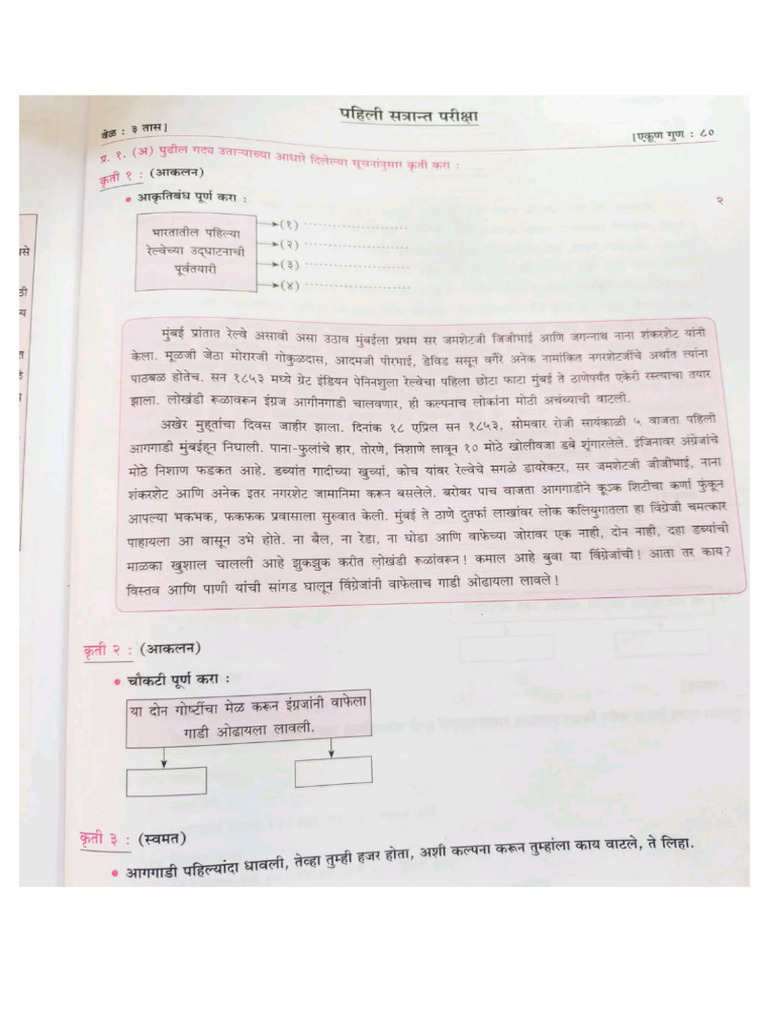 पहिली सत्रान्त परीक्षा
वेळ : ३ तास]
[एकूण गुण : ८०
प्र. १. (अ) पुढील गद्य उताऱ्याच्या आधारे दिलेल्या सूचनांनुसार कृती करा :
कृती १ : (आकलन)
• आकृतिबंध पूर्ण करा :
२
भारतातील पहिल्या
रेल्वेच्या उद्घाटनाची
पूर्वतयारी
(१) ........................
(२) ........................
(३) ........................
(४) ........................
मुंबई प्रांतात रेल्वे असावी असा उठाव मुंबईला प्रथम सर जमशेटजी जिजीभाई आणि जगन्नाथ नाना शंकरशेट यांनी
केला. मूळजी जेठा मोरारजी गोकुळदास, आदमजी पीरभाई, डेविड ससून वगैरे अनेक नामांकित नगरशेटजींचे अर्थात त्यांना
पाठबळ होतेच. सन १८५३ मध्ये ग्रेट इंडियन पेनिनशुला रेल्वेचा पहिला छोटा फाटा मुंबई ते ठाणेपर्यंत एकेरी रस्त्याचा तयार
झाला. लोखंडी रूळावरून इंग्रज आगीनगाडी चालवणार, ही कल्पनाच लोकांना मोठी अचंब्याची वाटली.
अखेर मुहूर्ताचा दिवस जाहीर झाला. दिनांक १८ एप्रिल सन १८५३, सोमवार रोजी सायंकाळी ५ वाजता पहिली
आगगाडी मुंबईहून निघाली. पाना-फुलांचे हार, तोरणे, निशाणे लावून १० मोठे खोलीवजा डबे शृंगारलेले. इंजिनावर अंग्रेजांचे
मोठे निशाण फडकत आहे. डब्यांत गादीच्या खुर्च्या, कोच यांवर रेल्वेचे सगळे डायरेक्टर, सर जमशेटजी जीजीभाई, नाना
शंकरशेट आणि अनेक इतर नगरशेट जामानिमा करून बसलेले. बरोबर पाच वाजता आगगाडीने कूऽक शिटीचा कर्णा फुंकून
आपल्या भकभक, फकफक प्रवासाला सुरुवात केली. मुंबई ते ठाणे दुतर्फा लाखांवर लोक कलियुगातला हा विंग्रेजी चमत्कार
पाहायला आ वासून उभे होते. ना बैल, ना रेडा, ना घोडा आणि वाफेच्या जोरावर एक नाही, दोन नाही, दहा डब्यांची
माळका खुशाल चालली आहे झुकझुक करीत लोखंडी रूळांवरून! कमाल आहे बुवा या विंग्रेजांची! आता तर काय?
विस्तव आणि पाणी यांची सांगड घालून विंग्रेजांनी वाफेलाच गाडी ओढायला लावले!
कृती २ : (आकलन)
• चौकटी पूर्ण करा :
या दोन गोष्टींचा मेळ करून इंग्रजांनी वाफेला
गाडी ओढायला लावली.
कृती ३ : (स्वमत)
• आगगाडी पहिल्यांदा धावली, तेव्हा तुम्ही हजर होता, अशी कल्पना करून तुम्हांला काय वाटले, ते लिहा.